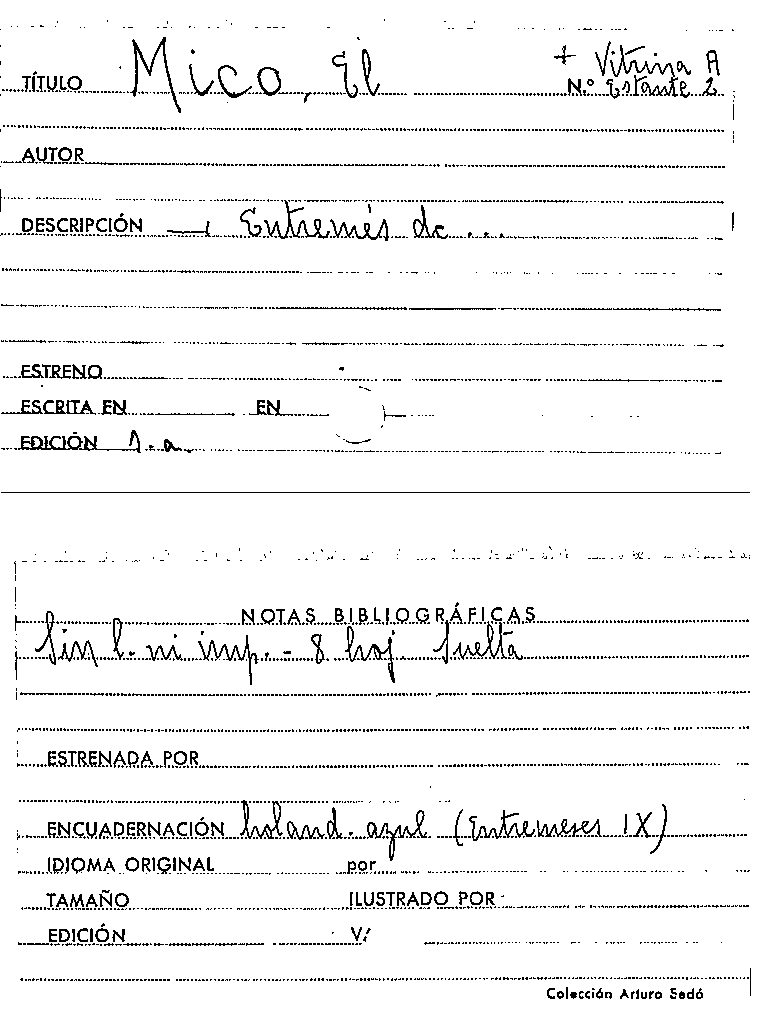 + Vitrina A
TÍTULO Mico, El N.º Estante 2
AUTOR
DESCRIPCIÓN — Entremés de ...
ESTRENO
ESCRITA EN EN
EDICIÓN 1.a
NOTAS BIBLIOGRÁFICAS
Sin l. ni imp. - 8 hoj. Suelta
ESTRENADA POR
ENCUADERNACIÓN holand. azul (Entremeses IX)
IDIOMA ORIGINAL por
TAMAÑO ILUSTRADO POR
EDICIÓN V/
Colección Arturo Sedó